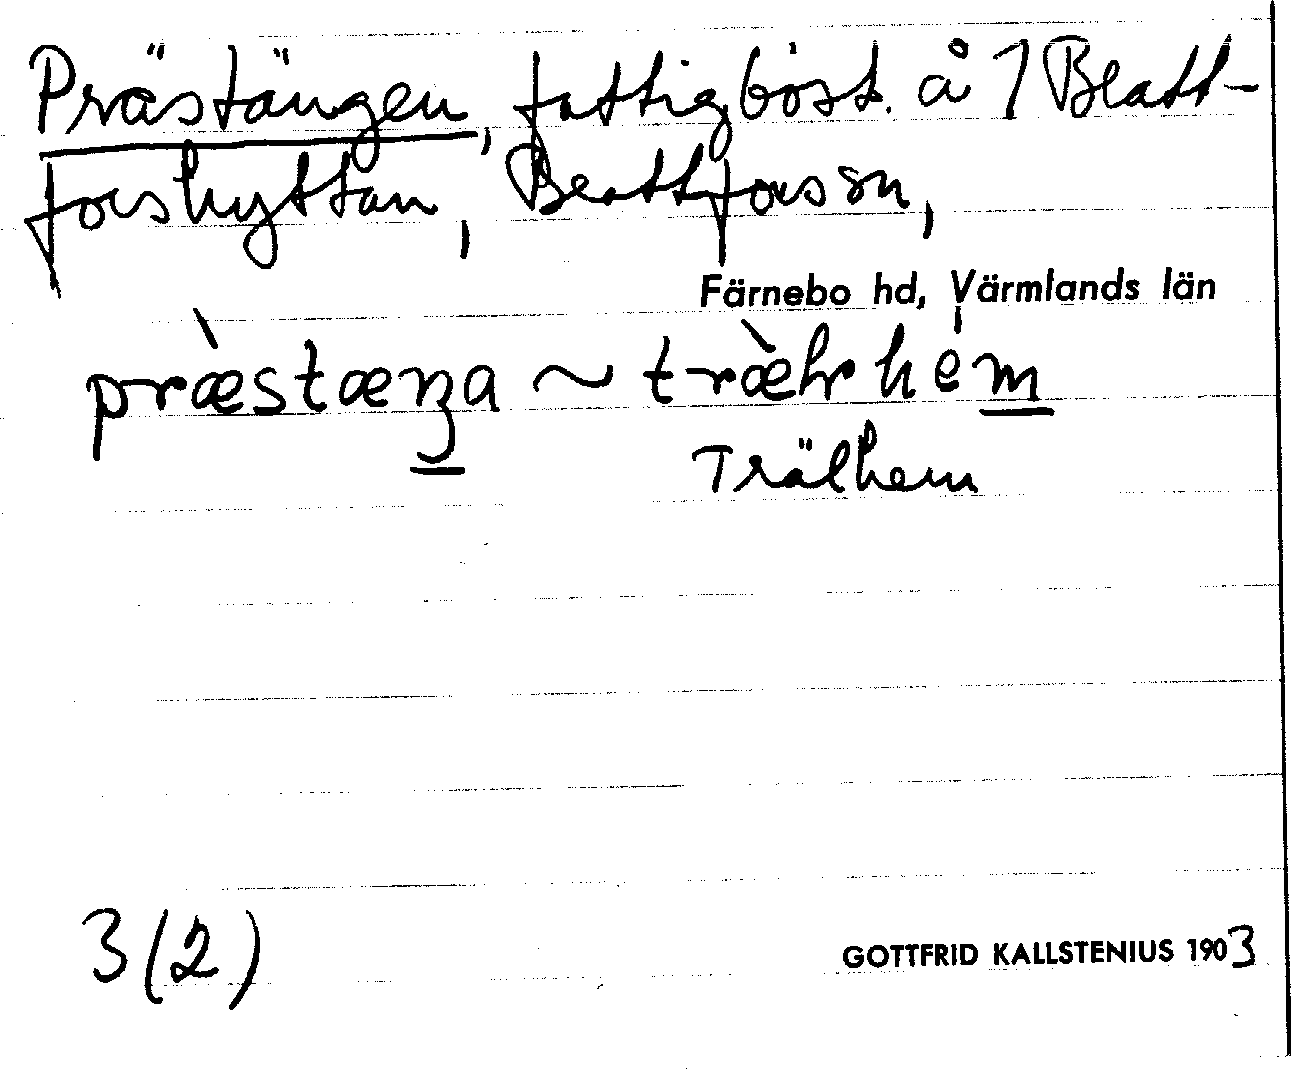 Prästängen, fattigböst. å 1 Beatt-
forshyttan, Beattforssn,
Färnebo hd, Värmlands län
præ̀stæŋa ~ træ̀lrhém
Trälhem
3(2)
GOTTFRID KALLSTENIUS 1903